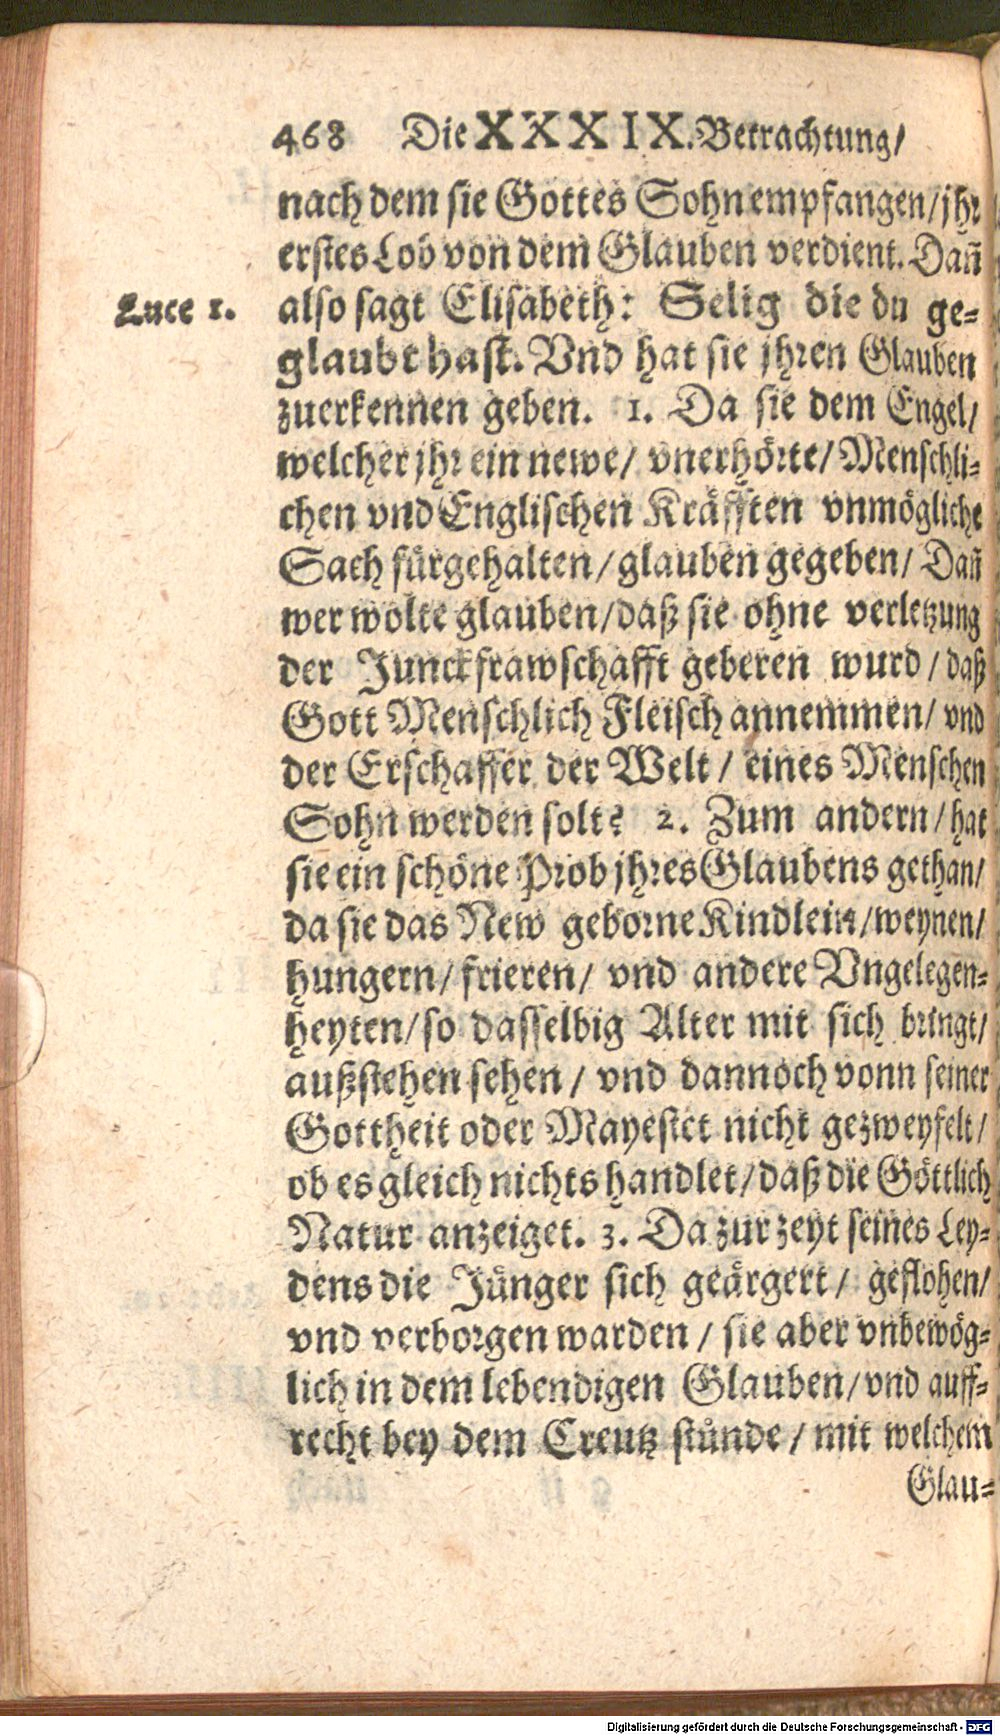 468 Die XXXIX. Betrachtung/
nach dem sie Gottes Sohn empfangen/jhr
erstes Lob von dem Glauben verdient. Dañ
Luce 1. also sagt Elisabeth: Selig die du ge-
glaubt hast. Vnd hat sie jhren Glauben
zuerkennen geben. 1. Da sie dem Engel/
welcher jhr ein newe/ vnerhörte/ Menschli-
chen vnd Englischen Kräfften vnmögliche
Sach fürgehalten/glauben gegeben/ Dañ
wer wolte glauben/daß sie ohne verletzung
der Junckfrawschafft geberen wurd/daß
Gott Menschlich Fleisch annemmen/ vnd
der Erschaffer der Welt/ eines Menschen
Sohn werden solt? 2. Zum andern/hat
sie ein schöne Prob jhres Glaubens gethan/
da sie das New geborne Kindlein/weynen/
hungern/frieren/ vnd andere Vngelegen-
heyten/so dasselbig Alter mit sich bringt/
außstehen sehen/ vnd dannoch vonn seiner
Gottheit oder Mayestet nicht gezweyfelt/
ob es gleich nichts handlet/daß die Göttlich
Natur anzeiget. 3. Da zur zeyt seines Ley-
dens die Jünger sich geärgert/ geflohen/
vnd verborgen warden/ sie aber vnbewög-
lich in dem lebendigen Glauben/vnd auff-
recht bey dem Creutz stünde/ mit welchem
Glau-
Digitalisierung gefördert durch die Deutsche Forschungsgemeinschaft - DFG